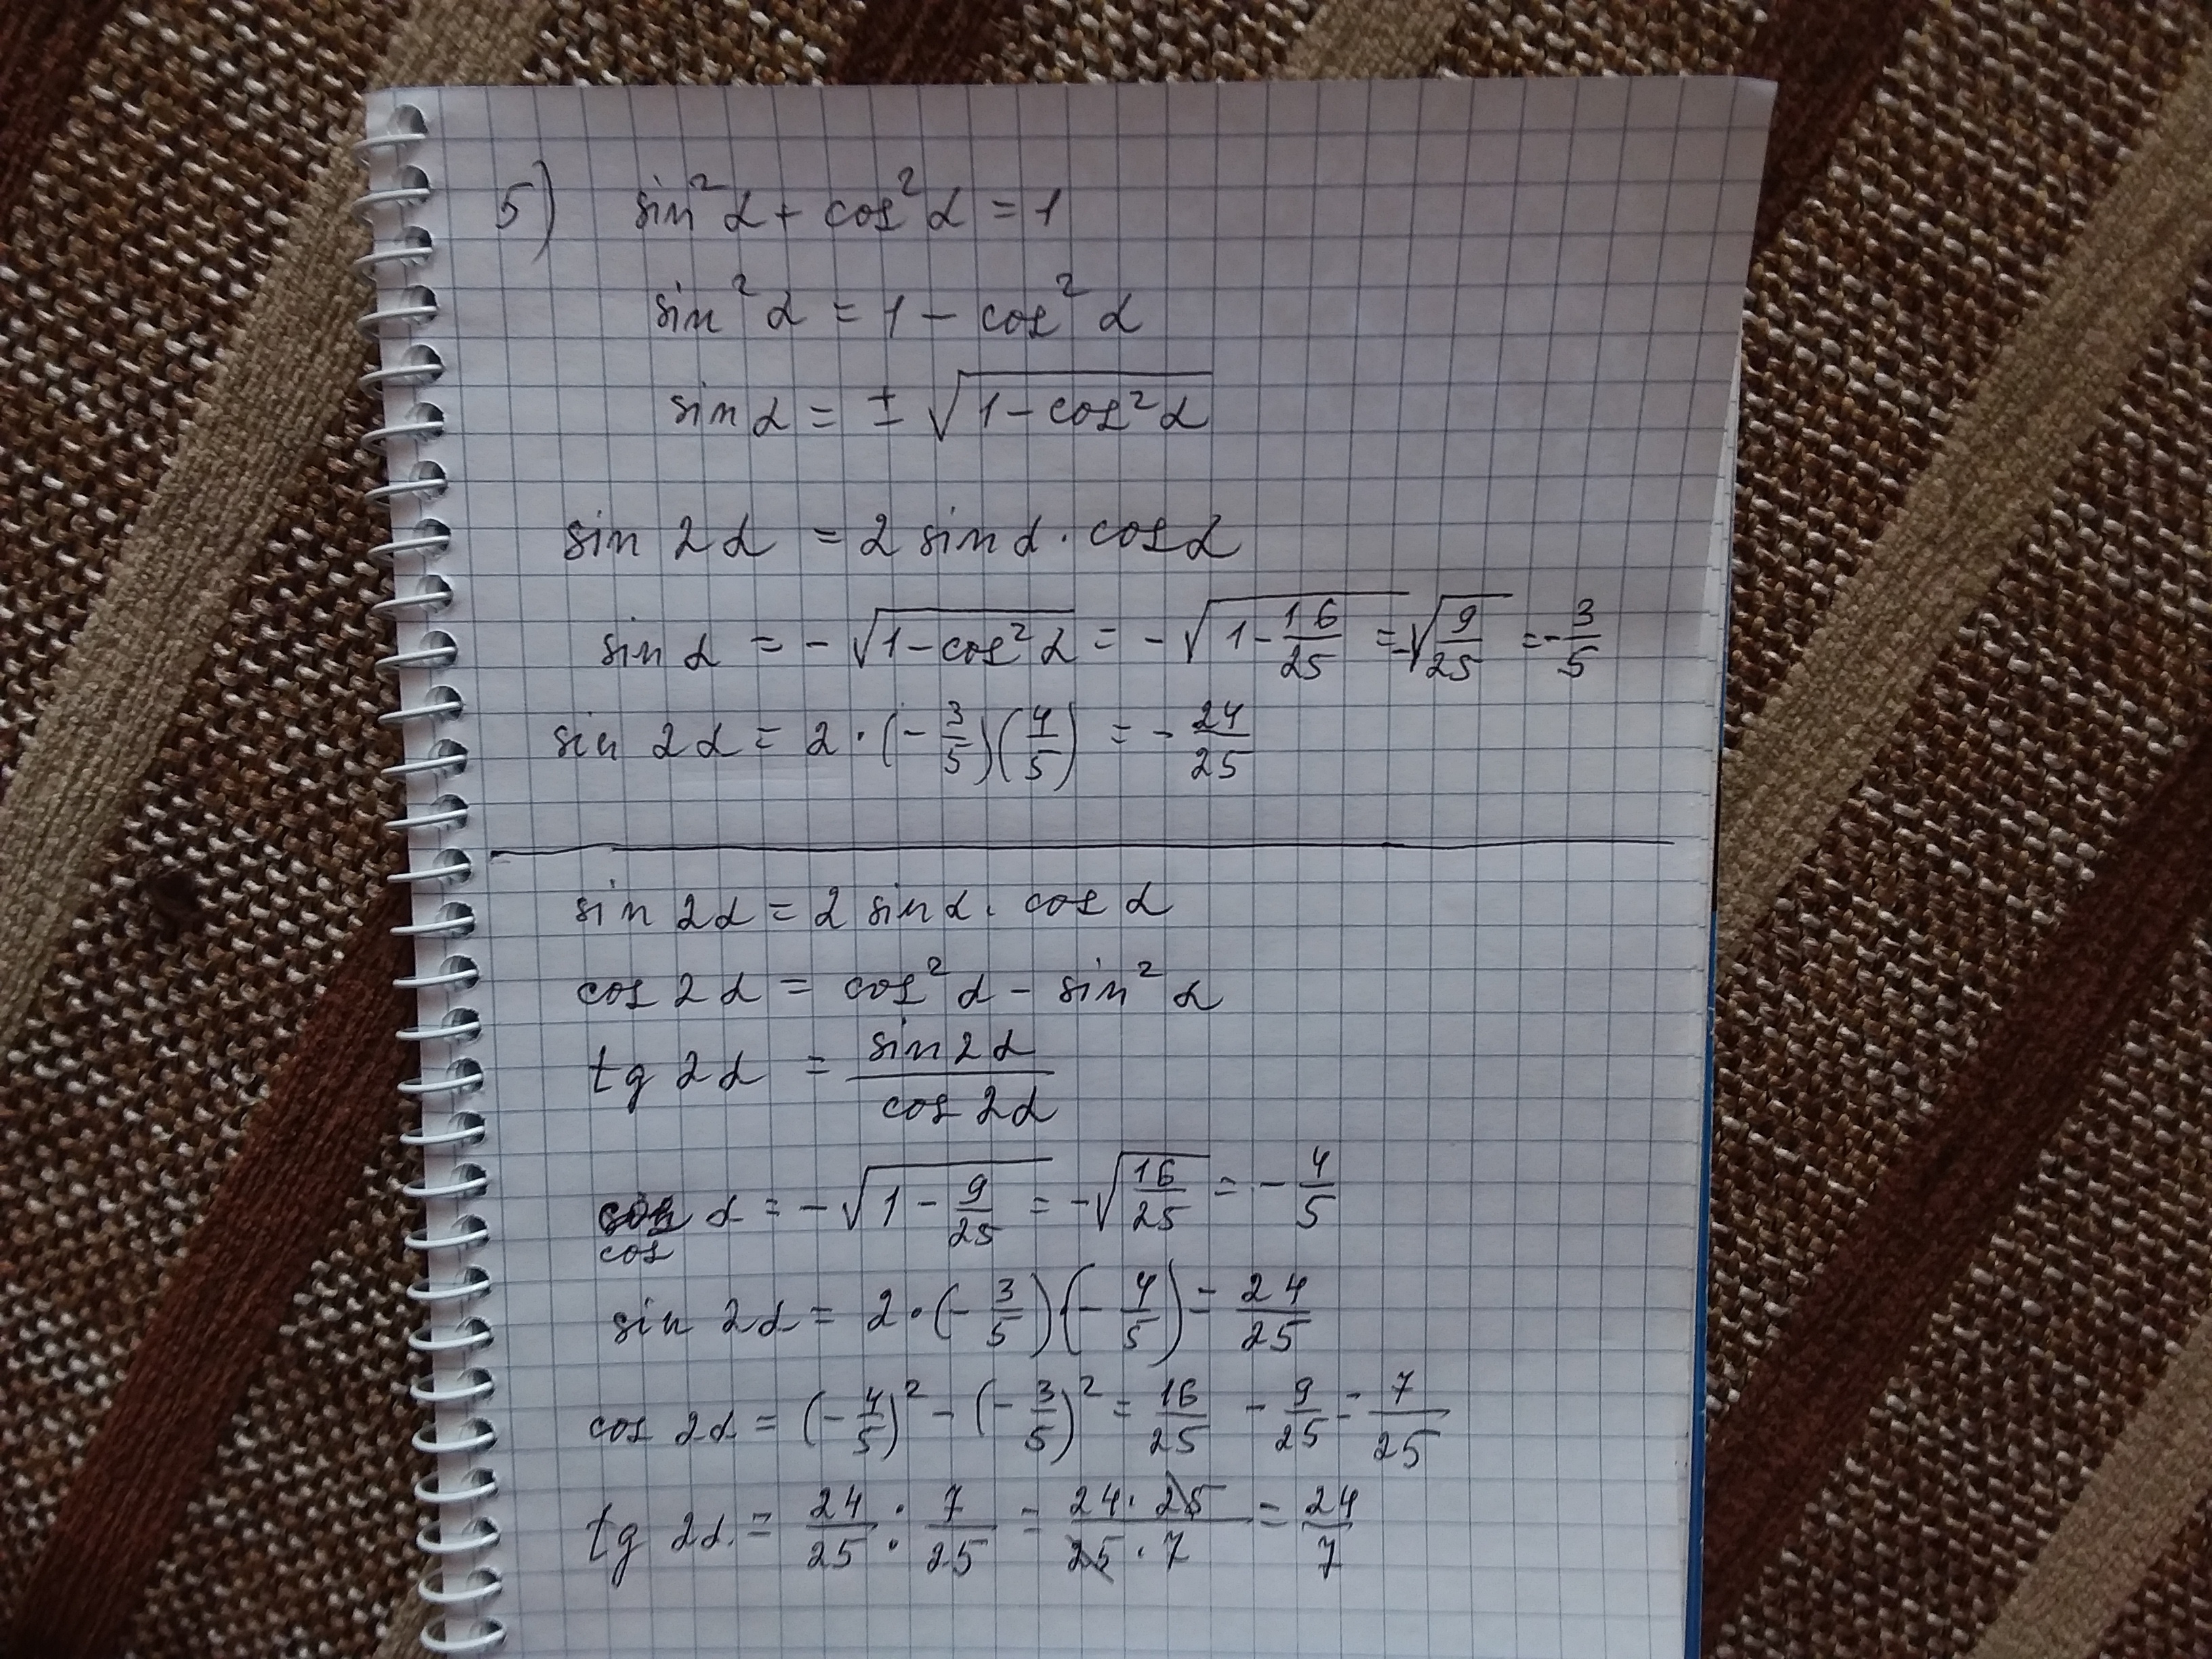 5) sin²α + cos²α = 1
sin²α = 1 - cos²α
sin α = ± √(1 - cos²α)
sin 2α = 2 sin α · cos α
sin α = - √(1 - cos²α) = - √(1 - 16/25) = - √(9/25) = - 3/5
sin 2α = 2 · (- 3/5)(4/5) = - 24/25
sin 2α = 2 sin α · cos α
cos 2α = cos²α - sin²α
tg 2α = sin 2α / cos 2α
cos α = - √(1 - 9/25) = - √(16/25) = - 4/5
sin 2α = 2 · (- 3/5)(- 4/5) = 24/25
cos 2α = (- 4/5)² - (- 3/5)² = 16/25 - 9/25 = 7/25
tg 2α = 24/25 : 7/25 = 24 · 25 / 25 · 7 = 24/7